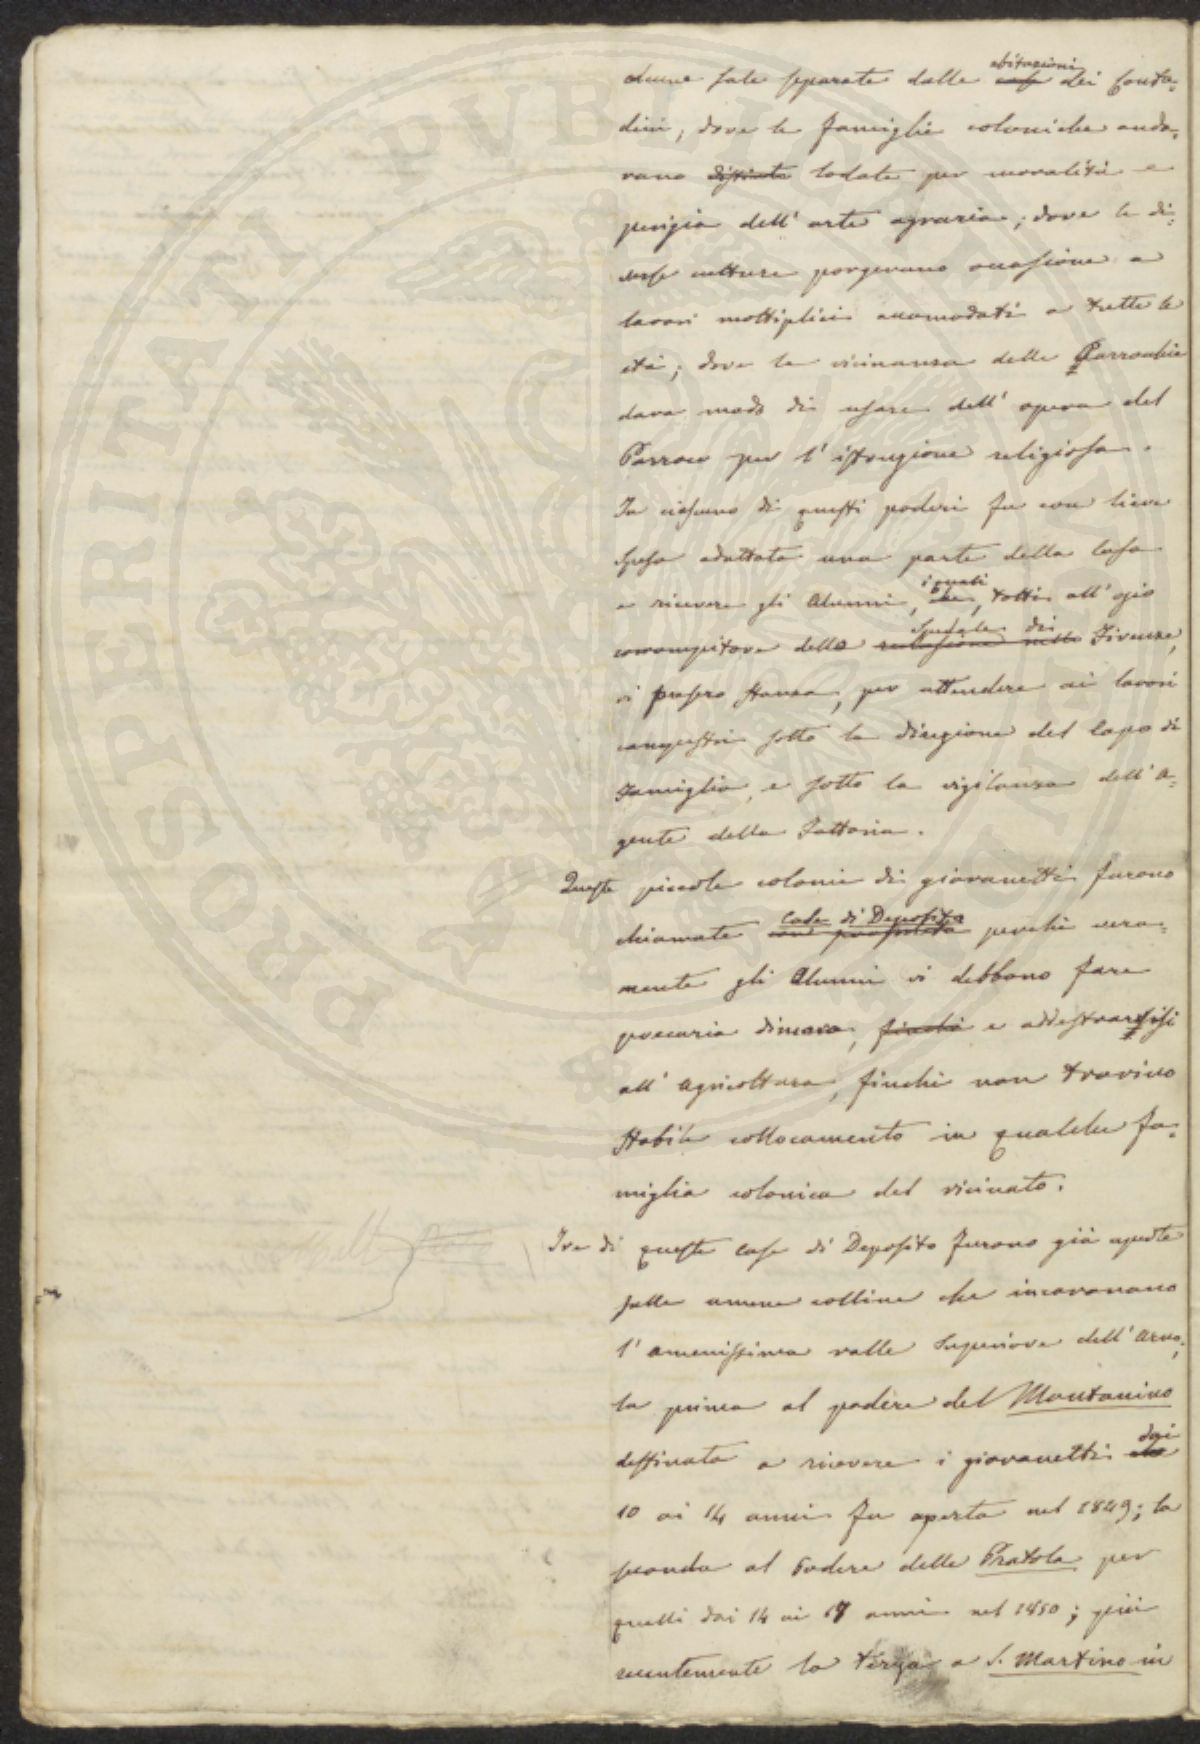 PROSPERITATI PVBLICAE
alcune sale separate dalle case abitazioni dei Conta=
dini, dove le famiglie coloniche anda=
vano distinte lodate per moralità e
perizia dell' arte agraria; dove le di=
verse culture porgevano occasione a
lavori moltiplici accomodati a tutte le
età; dove la vicinanza delle Parrocchie
dava modo di usare dell' opera del
Parroco per l' istruzione religiosa.
In ciascuno di questi poderi fu con lieve
spesa adattata una parte della Casa
a ricevere gli Alunni, che i quali, tolti all' ozio
corrompitore dello reclusione nello Spedale di Firenze,
vi presero stanza, per attendere ai lavori
campestri sotto la direzione del Capo di
Famiglia, e sotto la vigilanza dell' A=
gente della Fattoria.
Queste piccole colonie di giovanetti furono
chiamate Case di Deposito perchè vera=
mente gli Alunni vi debbono fare
precaria dimora, finchè e addestrarsi
all' Agricoltura, finchè non trovino
stabile collocamento in qualche fa=
miglia colonica del vicinato.
Tre di queste Case di Deposito furono già aperte
sulle amene colline che incoronano
l' amenissima valle Superiore dell' Arno,
la prima al podere del Montanino
destinata a ricevere i giovanetti dai
10 ai 14 anni fu aperta nel 1849; la
seconda al Podere delle Pratola per
quelli dai 14 ai 18 anni nel 1850; più
recentemente la terza a S. Martino in